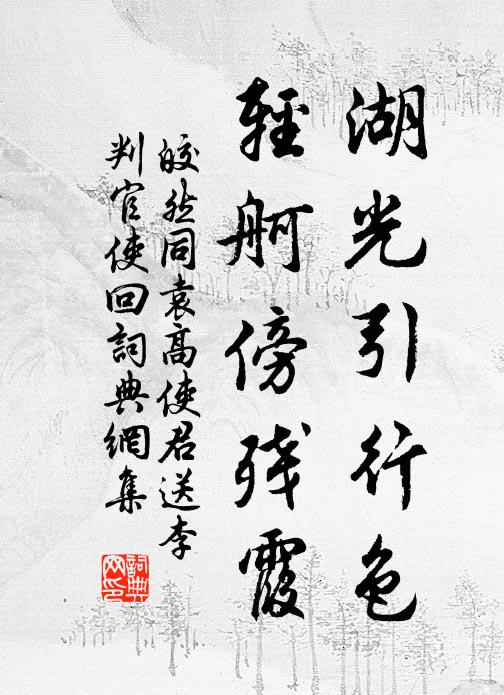 湖光引行色
輕舸傍殘霞
皎然同袁高使君送李
判官使回詞典網集
詞典
网印